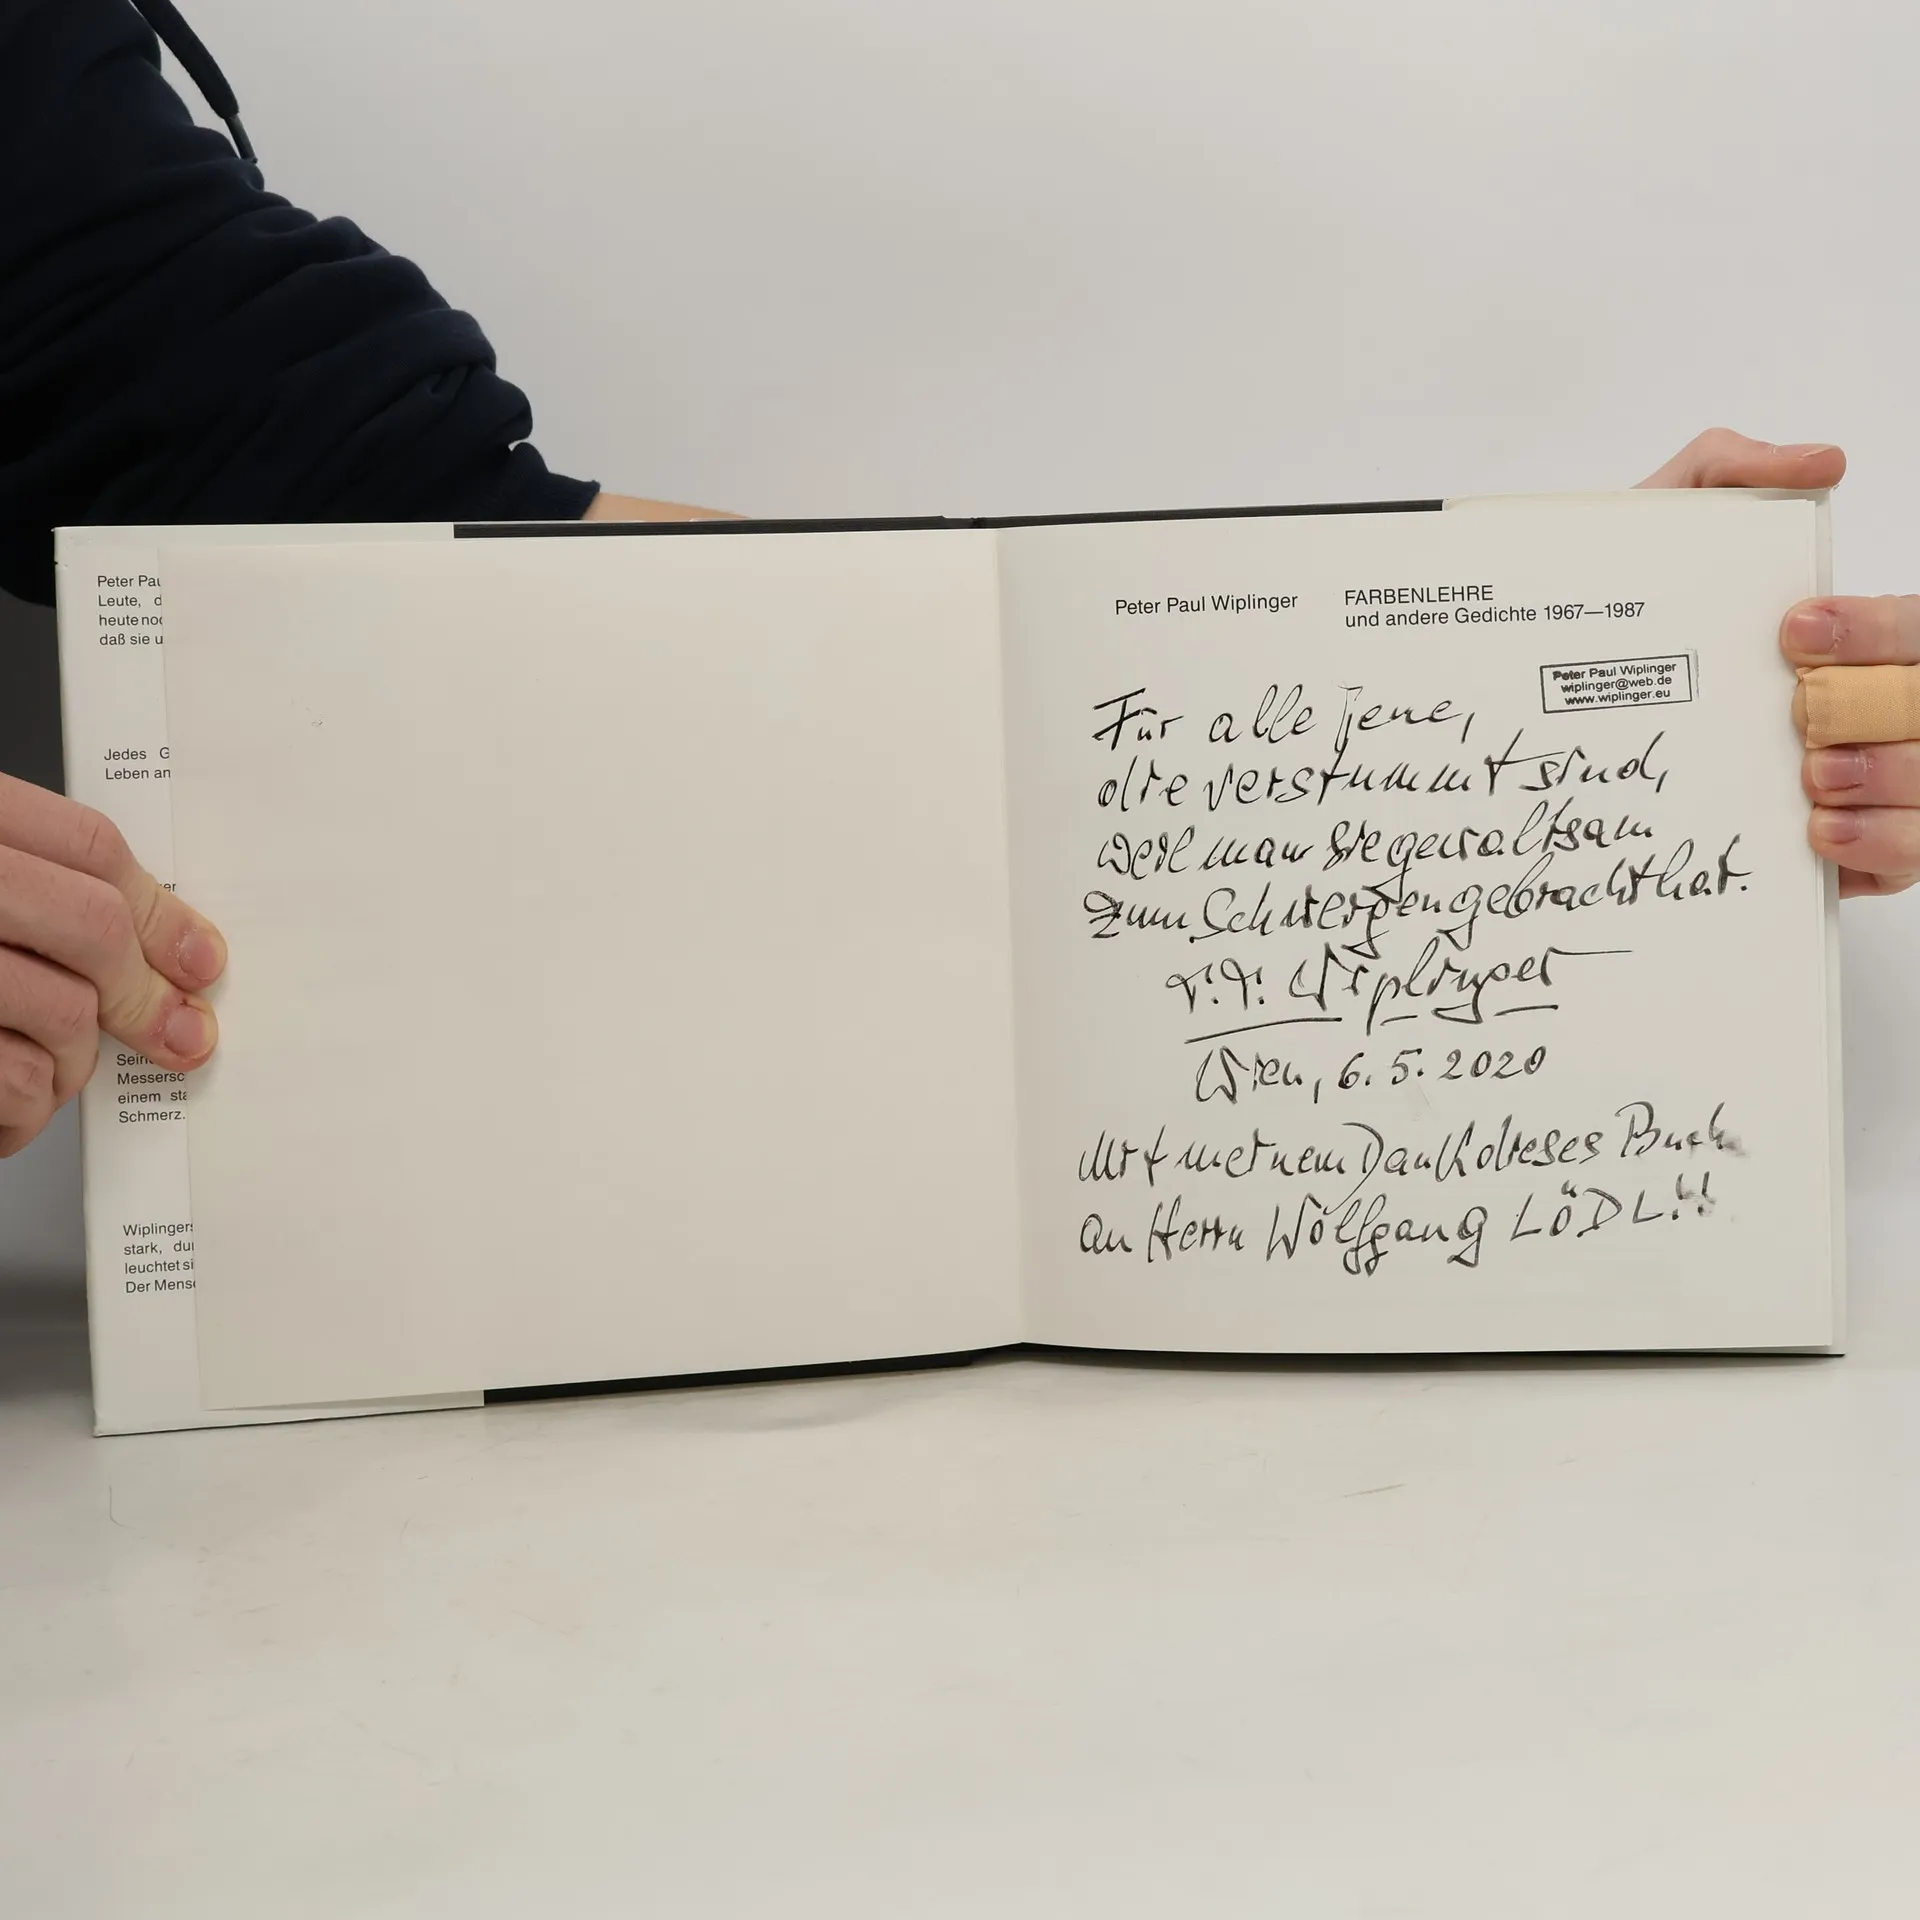 Peter Pau
Leute, d
heute noc
daß sie u
Jedes G
Leben an
er
Sein
Messersc
einem sta
Schmerz.
Wiplingers
stark, dur
leuchtet si
Der Mensc
Peter Paul Wiplinger
FARBENLEHRE
und andere Gedichte 1967—1987
Peter Paul Wiplinger
wiplinger@web.de
www.wiplinger.eu
Für alle Jene,
die verstummt sind,
weil man sie gewaltsam
zum Schweigen gebracht hat.
P.P. Wiplinger
Wien, 6. 5. 2020
Mit meinem Dank dieses Buch
an Herrn Wolfgang LÖDL!!